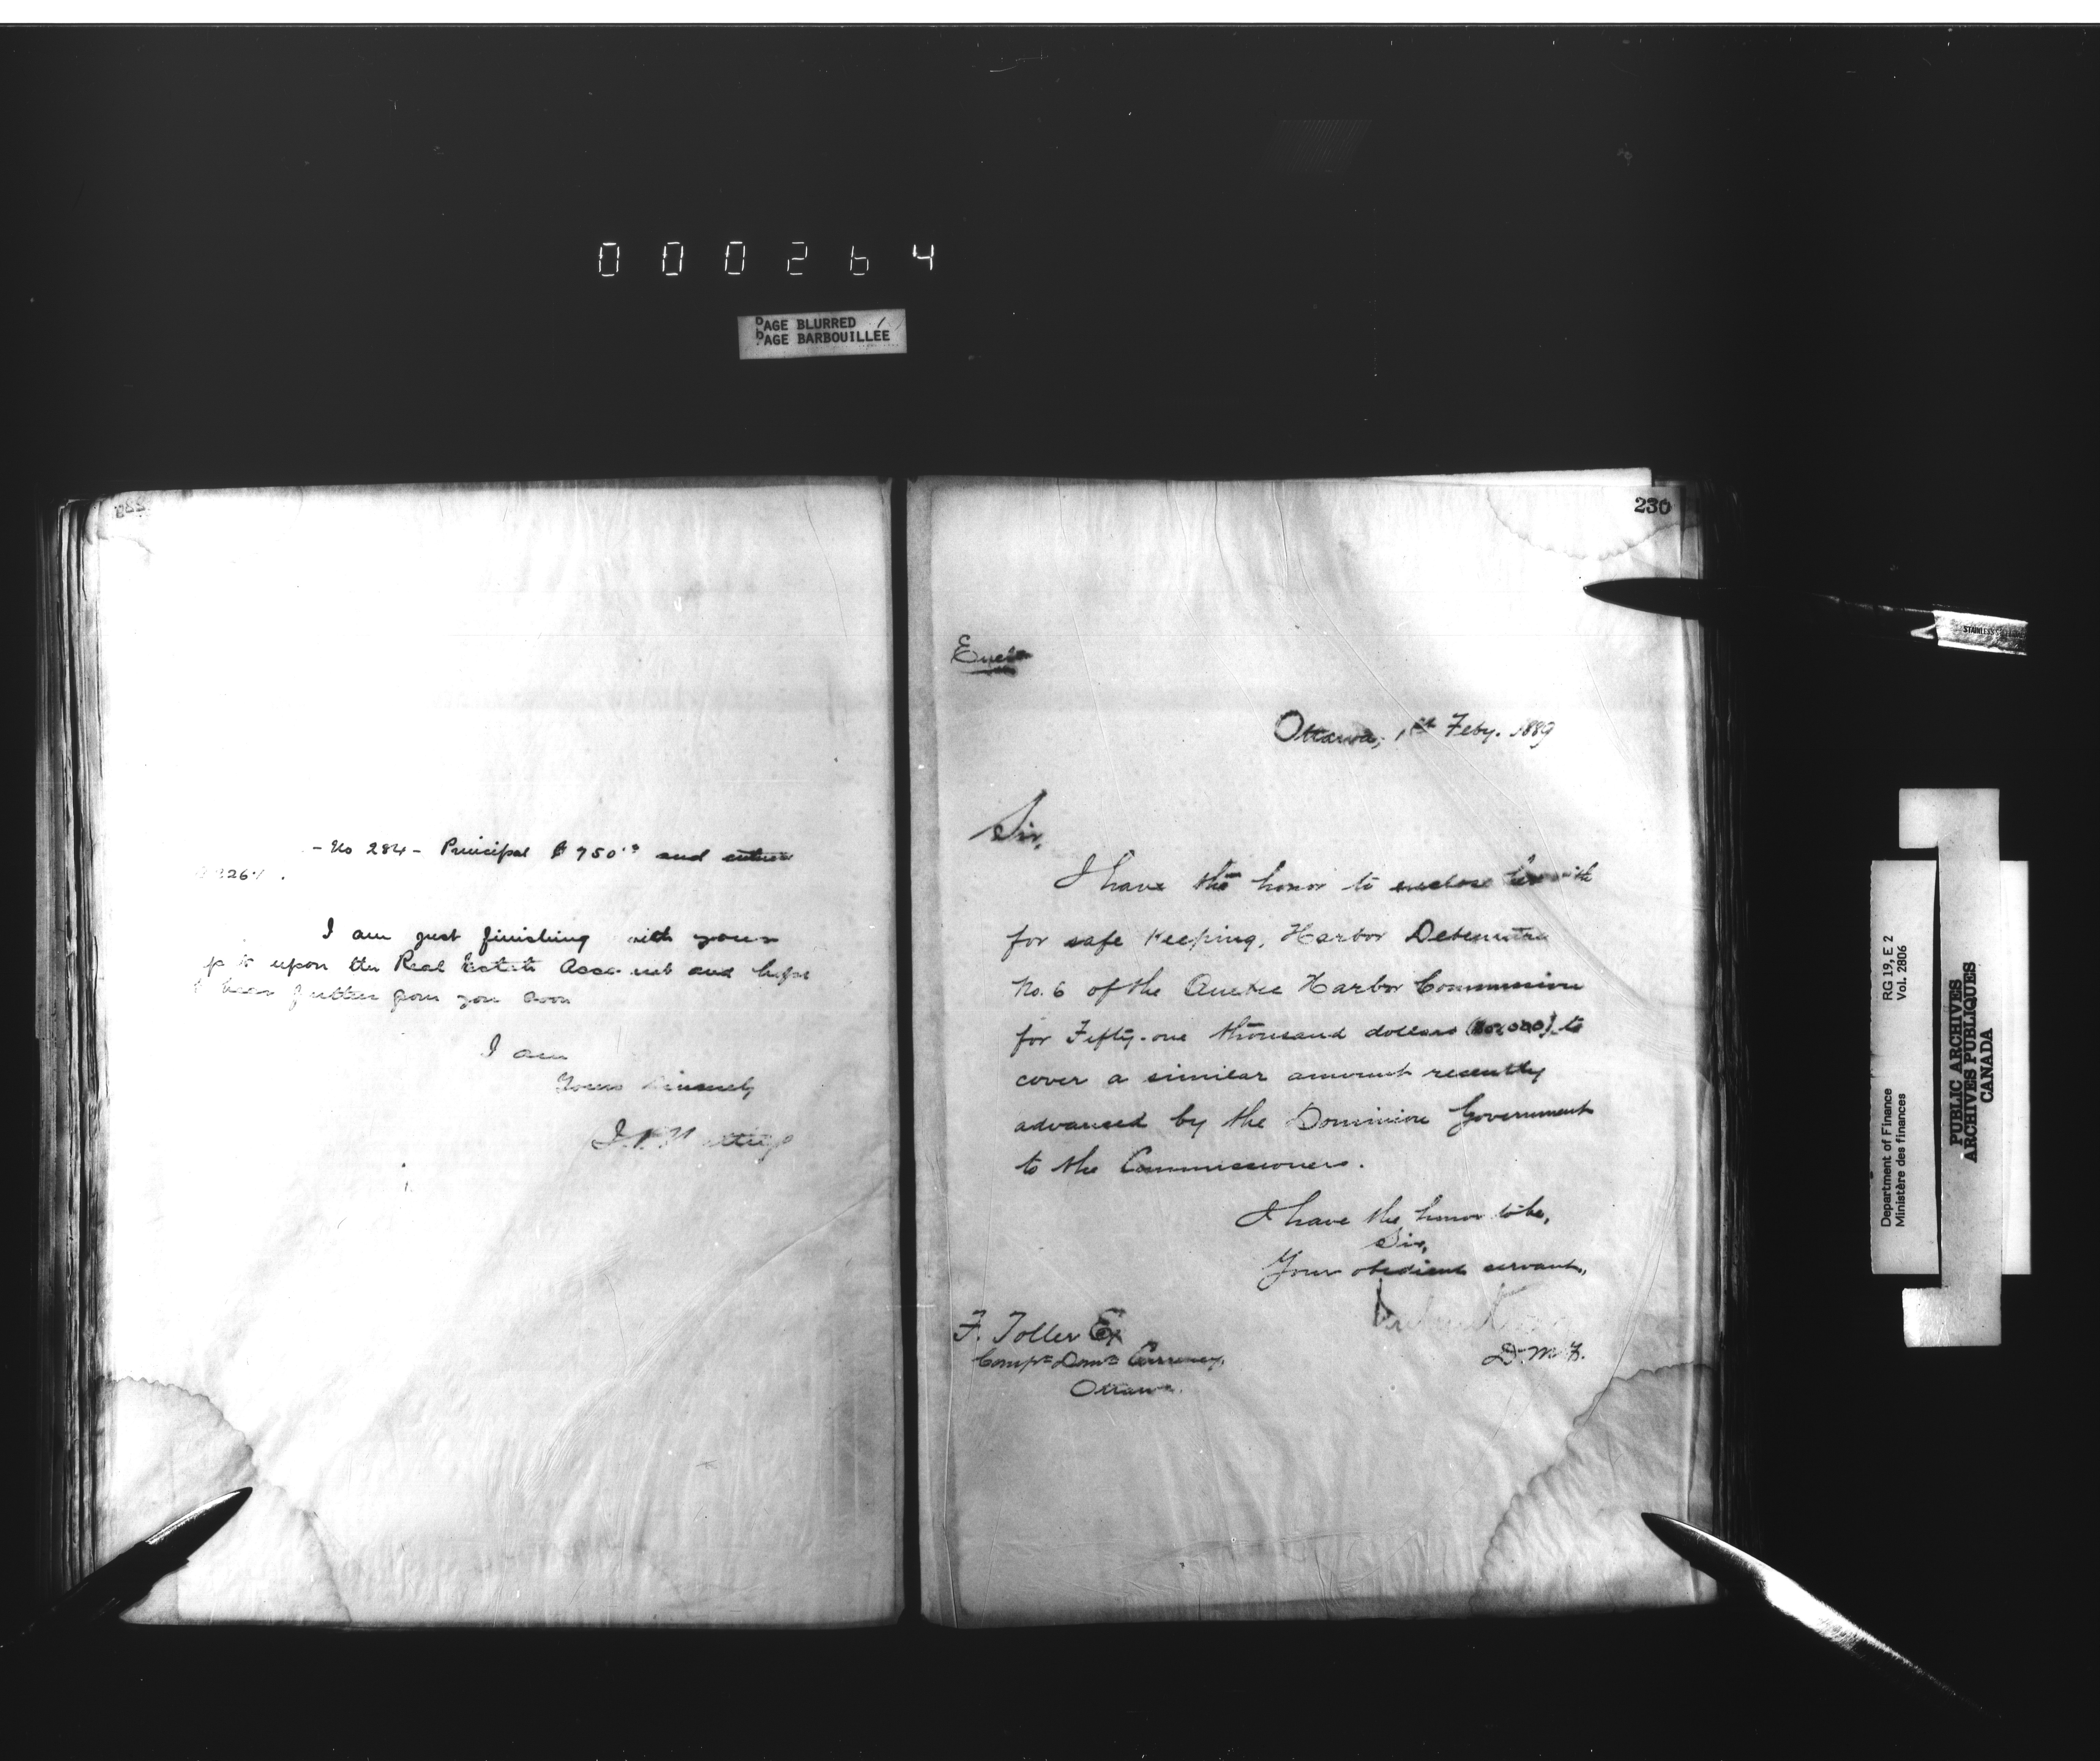 000264
PAGE BLURRED
PAGE BARBOUILLEE
- No 284 - Principal $750.00 and
326.
I am just finishing with your
upon the Real Estate Account and hope
to hear further from you soon
I am
Yours sincerely
230
Encl
Ottawa, 1st Feby. 1889
Sir,
I have the honor to enclose herewith
for safe keeping, Harbor Debenture
No. 6 of the Quebec Harbor Commission
for Fifty-one thousand dollars to
cover a similar amount recently
advanced by the Dominion Government
to the Commissioners.
I have the honor to be,
Sir,
Your obedient servant,
D.M.F.
F. Toller Esq
Compr Domn Currency,
Ottawa.
STAINLESS
Department of Finance RG 19, E 2
Ministère des finances Vol. 2806
PUBLIC ARCHIVES
ARCHIVES PUBLIQUES
CANADA